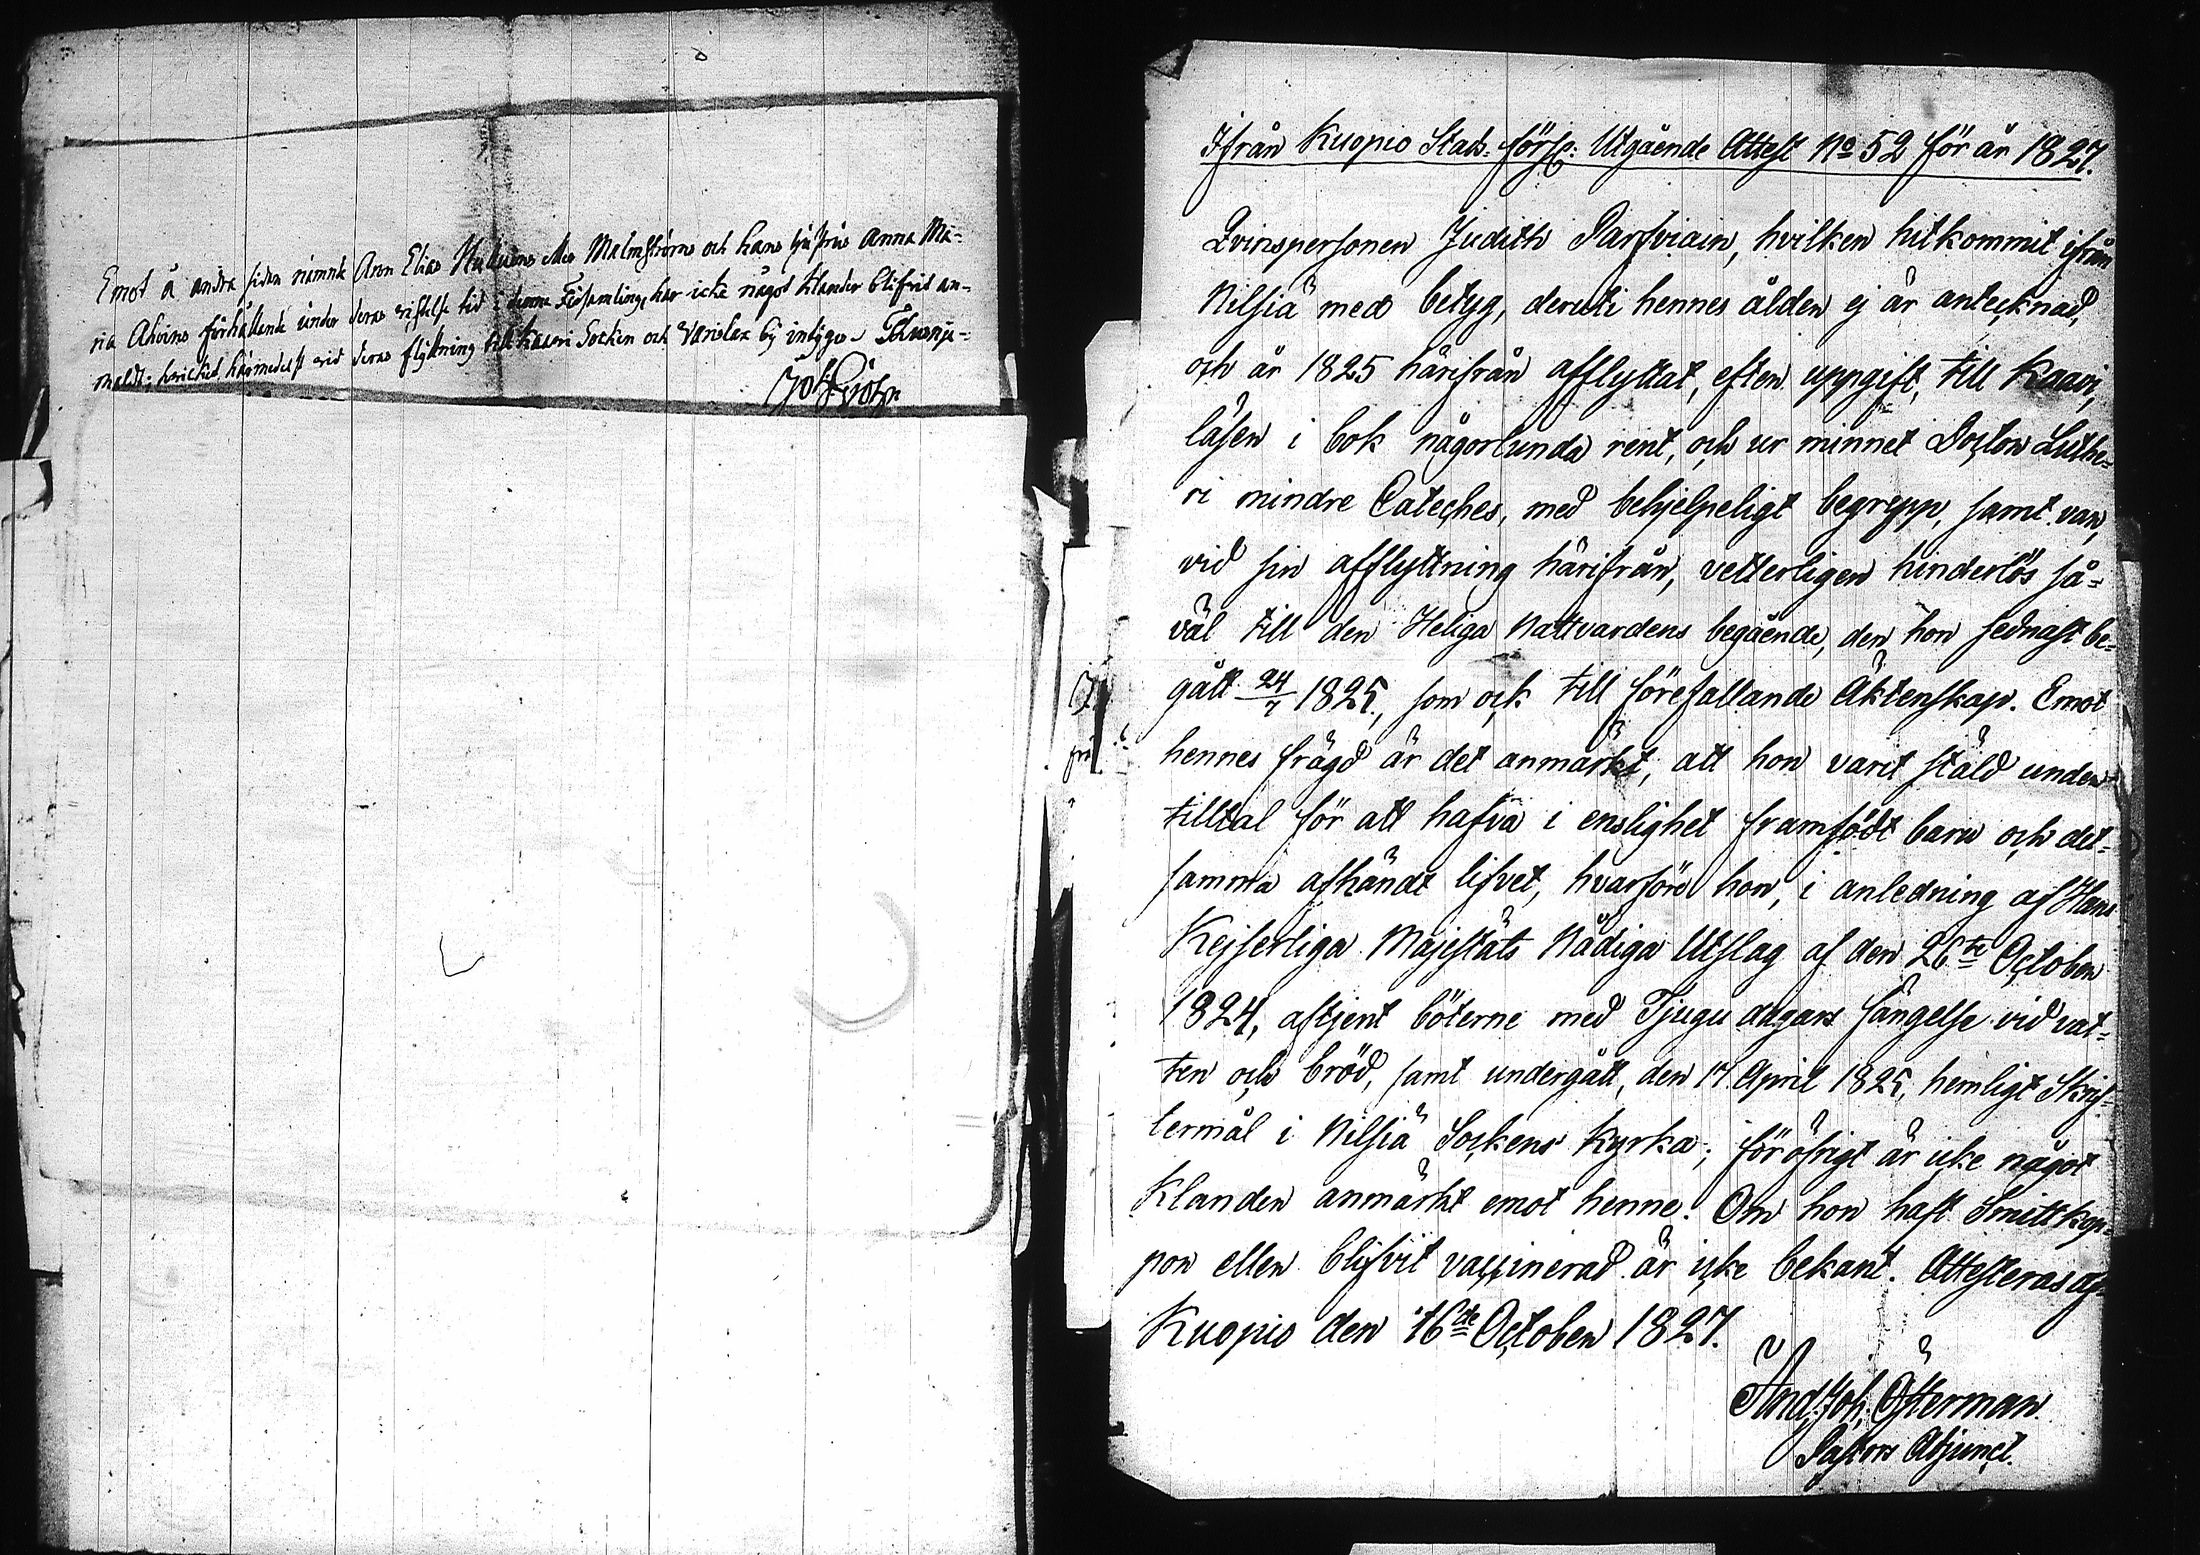 Emot å andra sidan nämnde Aron Elias Malmströms och hans hustrus Anna Ma-
ria Ahvins förhållande under deras vistelse tid i denna Församling, har icke något klander blifvit an-
mäldt; hvilket härmedelst vid deras flyttning till Kaavi Socken och by intygas
Ifrån Kuopio Stads-förs: Utgående Attest No 52 för år 1827.
Qvinspersonen Judith Parfviain, hvilken hitkommit ifrån
Nilsiä med betyg, deruti hennes ålder ej är antecknad,
och år 1825 härifrån afflyttat, efter uppgift, till Kaavi,
läser i bok någorlunda rent, och ur minnet Doctor Luthe-
ri mindre Cateches, med behjelpeligt begrepp, samt var,
vid sin afflyttning härifrån, vetterligen hinderlös så-
väl till den Heliga Nattvardens begående, den hon sednast be-
gått 24/7 1825, som ock till förefallande Äktenskap. Emot
hennes frägd är det anmärkt, att hon varit stäld under
tilltal för att hafva i enslighet framfödt barn och det-
samma afhändt lifvet, hvarföre hon, i anledning af Hans
Kejserliga Majestäts Nådiga Utslag af den 26te October
1824, aftjent böterne med Tjugu dagars fängelse vid vat-
ten och bröd, samt undergått, den 17 April 1825, hemligt Skrif-
termål i Nilsiä Sockens Kyrka; för öfrigt är icke något
Klander anmärkt emot henne. Om hon haft Smittkop-
por eller blifvit vaccinerad är icke bekant. Attesteras af
Kuopio den 16de October 1827.
And: Joh: Österman
Pastors Adjunct.